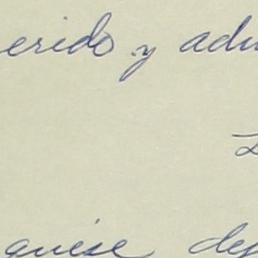 erido y adm
quise des